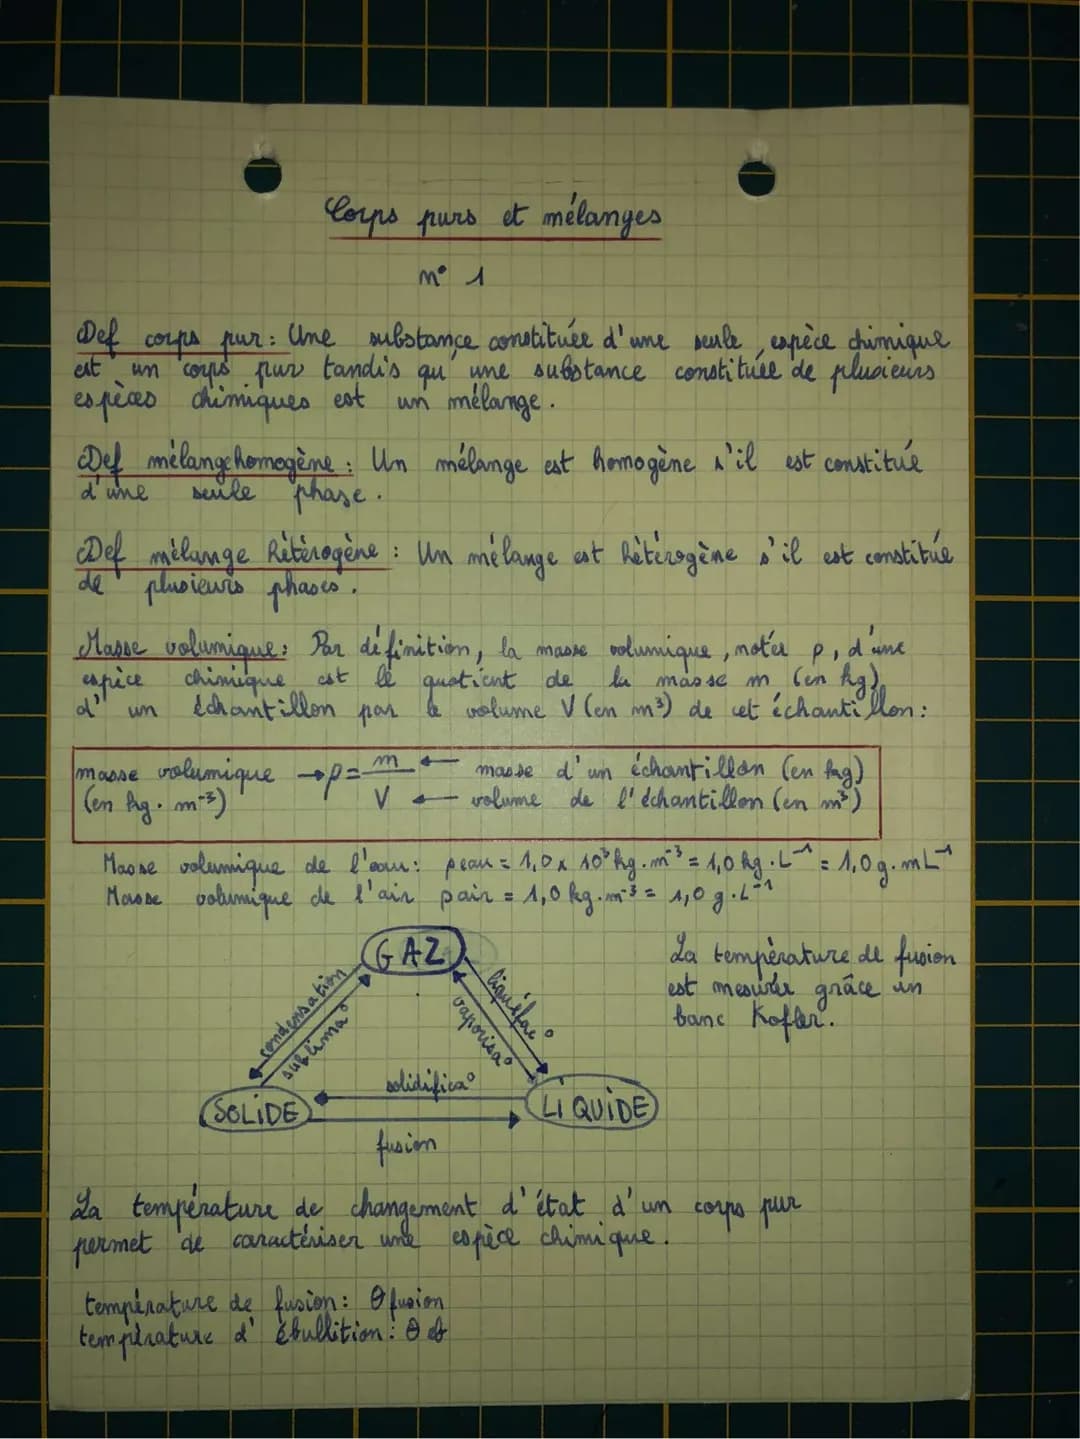 Corps purs et mélanges
n° 1
Def corps pur : Une substance constituée d'une seule espèce chimique
est un corps pur tandis qu'une substance constituée de plusieurs
espèces chimiques est un mélange.
Def mélange homogène : Un mélange est homogène s'il est constitué
d'une seule phase.
Def mélange hétérogène : Un mélange est hétérogène s'il est constitué
de plusieurs phases.
Masse volumique : Par définition, la masse volumique, notée ρ, d'une
espèce chimique est le quotient de la masse m (en kg)
d'un échantillon par le volume V (en m³) de cet échantillon :
masse volumique → ρ = m/V ← masse d'un échantillon (en kg)
(en kg . m⁻³) ← volume de l'échantillon (en m³)
Masse volumique de l'eau : ρeau = 1,0 x 10³ kg . m⁻³ = 1,0 kg . L⁻¹ = 1,0 g . mL⁻¹
Masse volumique de l'air ρair = 1,0 kg . m⁻³ = 1,0 g . L⁻¹
GAZ
condensation
sublima°
liquéfac°
vaporisa°
La température de fusion
est mesurée grâce un
banc Kofler.
SOLIDE
solidifica°
fusion
LIQUIDE
La température de changement d'état d'un corps pur
permet de caractériser une espèce chimique.
température de fusion : θ fusion
température d'ébullition : θ eb